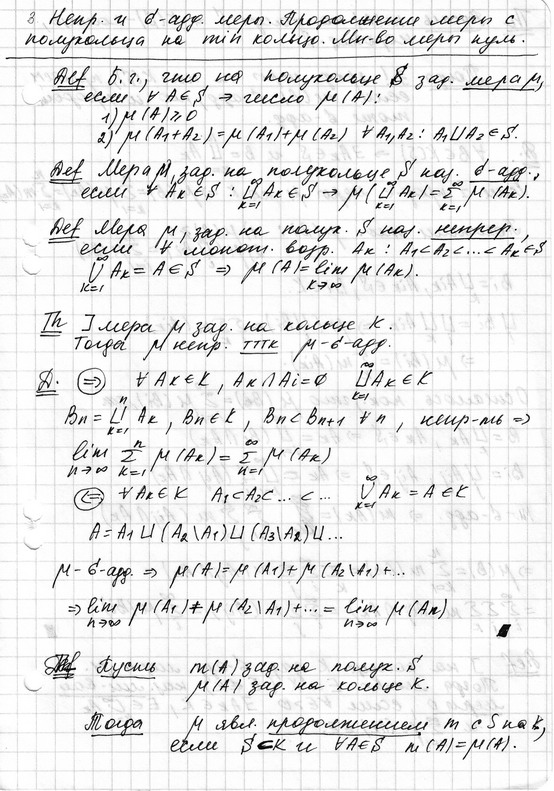 3. Непр. и σ-адд. меры. Продолжение меры с
полукольца на min кольцо. Мн-во меры нуль.
Def Б.г., что на полукольце S зад. мера μ,
если ∀ A∈S → число μ(A):
1) μ(A)≥0
2) μ(A₁+A₂)=μ(A₁)+μ(A₂) ∀A₁,A₂: A₁⊔A₂∈S.
Def Мера μ, зад. на полукольце S наз. σ-адд.,
если ∀ Aₖ∈S : ⊔_{k=1}^∞ Aₖ∈S → μ(⊔_{k=1}^∞ Aₖ)=Σ_{k=1}^∞ μ(Aₖ).
Def Мера μ, зад. на полук. S наз. непрер.,
если ∀ монот. возр. Aₖ : A₁⊂A₂⊂...⊂Aₖ∈S
∪_{k=1}^∞ Aₖ=A∈S ⇒ μ(A)=lim_{k→∞} μ(Aₖ).
Th ] мера μ зад. на кольце K.
Тогда μ непр. ттк μ-σ-адд.
Д. (⇒) ∀ Aₖ∈K, Aₖ∩Ai=∅ ⊔_{k=1}^∞ Aₖ∈K
Bₙ=⊔_{k=1}^n Aₖ, Bₙ∈K, Bₙ⊂Bₙ₊₁ ∀n, непр-ть ⇒
lim_{n→∞} Σ_{k=1}^n μ(Aₖ)=Σ_{n=1}^∞ μ(Aₖ)
(⇐) ∀Aₖ∈K A₁⊂A₂⊂...⊂... ∪_{k=1}^∞ Aₖ=A∈K
A=A₁⊔(A₂\A₁)⊔(A₃\A₂)⊔...
μ-σ-адд. ⇒ μ(A)=μ(A₁)+μ(A₂\A₁)+...
⇒ lim_{n→∞} μ(A₁)+μ(A₂\A₁)+...=lim_{n→∞} μ(Aₙ)
Def Пусть m(A) зад. на полук. S
μ(A) зад. на кольце K.
Тогда μ явл. продолжением m с S на K,
если S⊂K и ∀A∈S m(A)=μ(A).